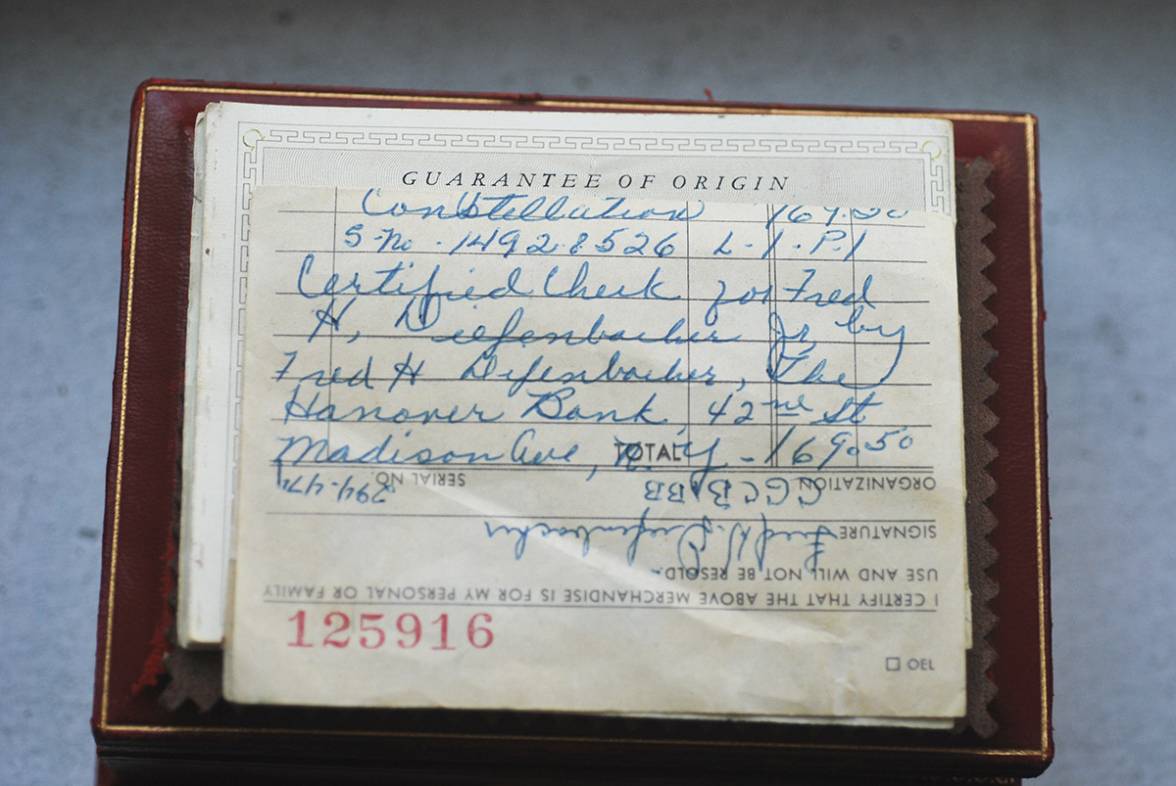 GUARANTEE OF ORIGIN
Constellation 169.50
S-No - 14928526 L-1-P-1
Certified Check for Fred
H. Diefenbacher Jr by
Fred H Diefenbacher, The
Hanover Bank, 42nd St
Madison Ave, N.Y - 169.50
TOTAL
ORGANIZATION CGCBIBB SERIAL NO. 294-474
SIGNATURE Fred H. Diefenbacher
USE AND WILL NOT BE RESOLD.
I CERTIFY THAT THE ABOVE MERCHANDISE IS FOR MY PERSONAL OR FAMILY
125916
130